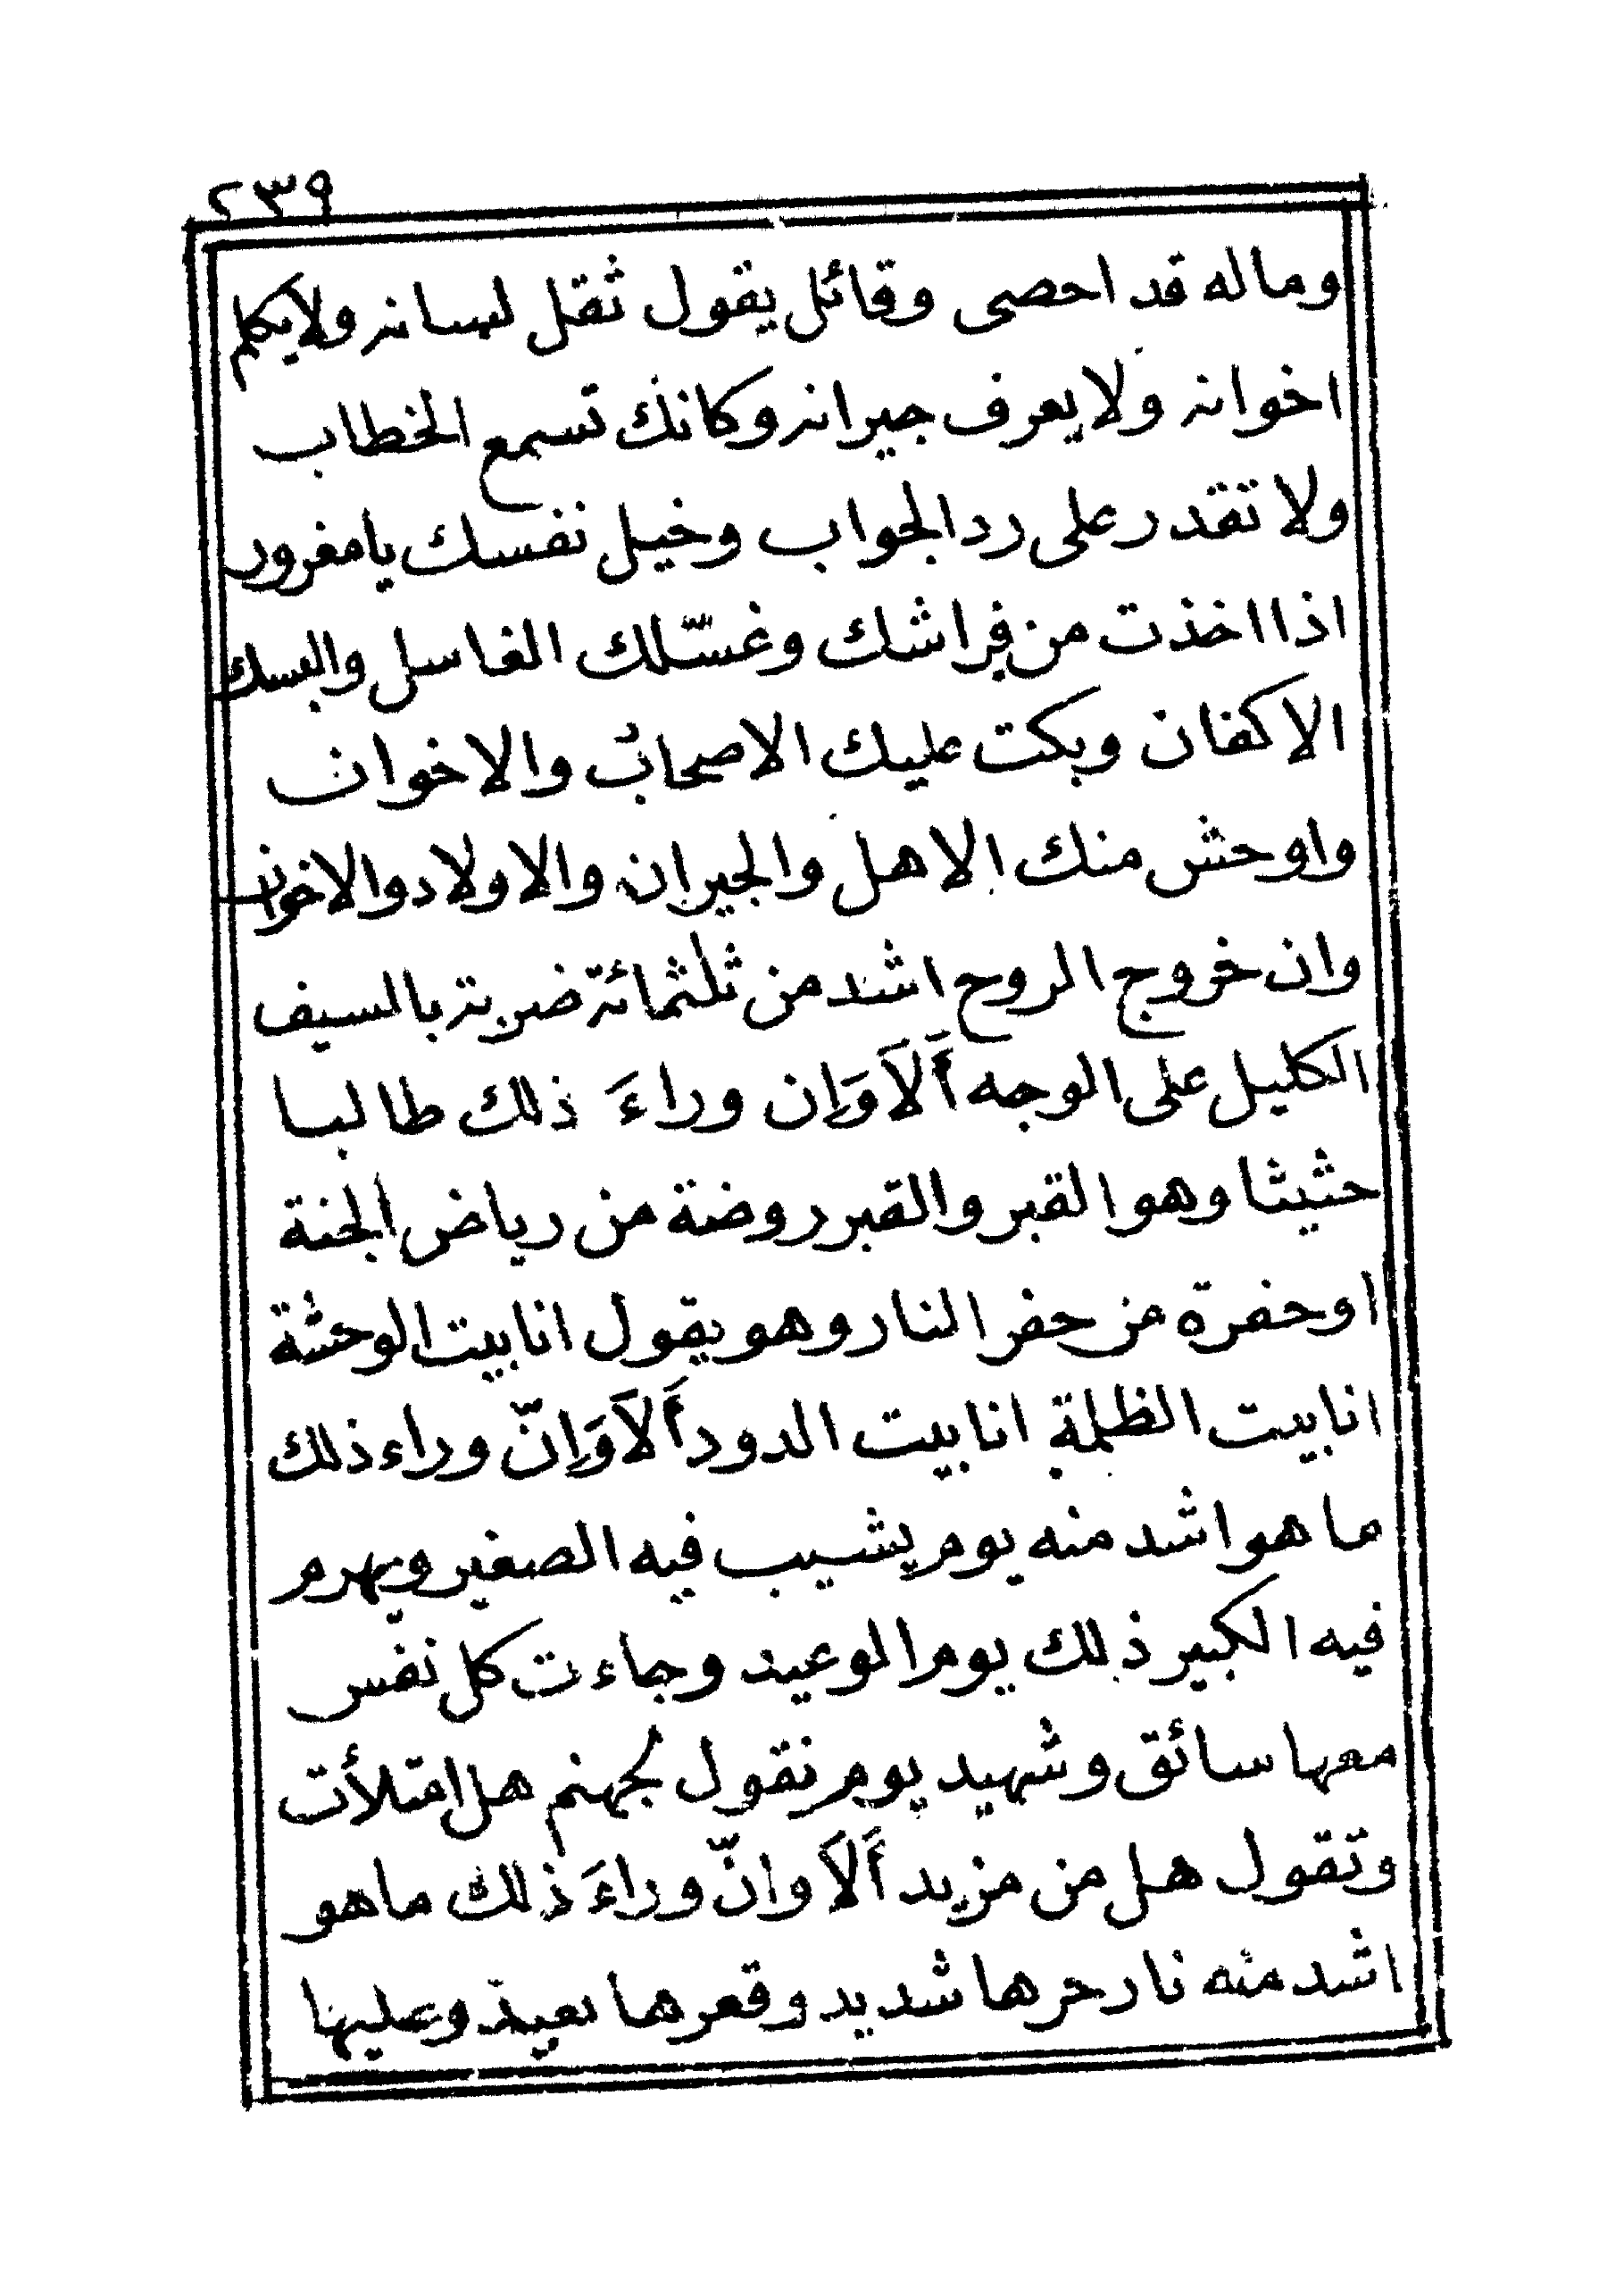 ٢٣٩
وماله قد احصى وقائل يقول ثقل لسانه ولا يكلم
اخوانه ولا يعرف جيرانه وكانك تسمع الخطاب
ولا تقدر على رد الجواب وخيل نفسك يا مغرور
اذا اخذت من فراشك وغسّلك الغاسل والبسك
الاكفان وبكت عليك الاصحابُ والاخوان
واوحش منك الاهل والجيران والاولاد والاخوان
وان خروج الروح اشد من ثلثمائة ضربة بالسيف
الكليل على الوجه أَلاَ وَاِن وراءَ ذلك طالبا
حثيثا وهو القبر والقبر روضة من رياض الجنة
او حفرة من حفر النار وهو يقول انا بيت الوحشة
انا بيت الظلمة انا بيت الدود أَلاَ وَاِنّ وراء ذلك
ما هو اشد منه يوم يشيب فيه الصغير ويهرم
فيه الكبير ذلك يوم الوعيد وجاءت كل نفس
معها سائق وشهيد يوم نقول لجهنم هل امتلأت
وتقول هل من مزيد أَلاَ وانّ وراءَ ذلك ما هو
اشد منه نار حرها شديد وقعرها بعيد وعليها